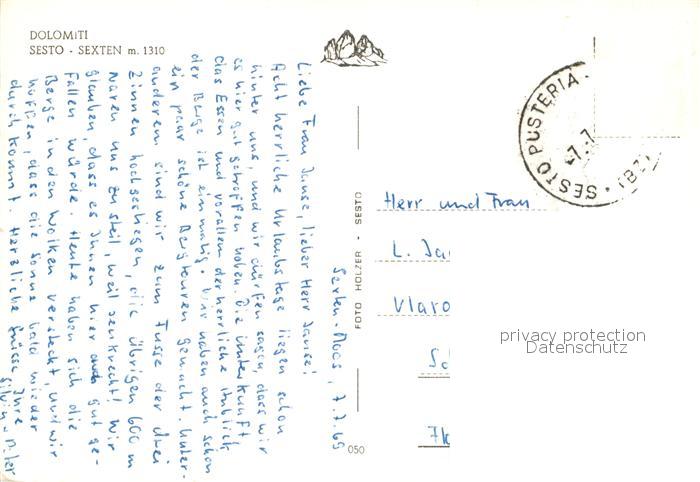 DOLOMITI
SESTO - SEXTEN m. 1310
Sexten-Moos, 7.7.69
Liebe Frau Janse, lieber Herr Janse!
Acht herrliche Urlaubstage liegen schon
hinter uns, und wir dürfen sagen, dass wir
es hier gut getroffen haben. Die Unterkunft,
das Essen und vor allem der herrliche Anblick
der Berge ist einmalig. Wir haben auch schon
ein paar schöne Bergtouren gemacht. Unter-
anderem sind wir zum Fusse der drei
Zinnen hochgestiegen, die übrigen 600 m
waren uns zu steil, weil senkrecht! Wir
glauben, dass es Ihnen hier auch gut ge-
fallen würde. Heute haben sich die
Berge in den Wolken versteckt, und wir
hoffen, dass die Sonne bald wieder
durchkommt. Herzliche Grüsse, Ihre
FOTO HOLZER - SESTO
050
SESTO PUSTERIA
-7.-7
Herr und Frau
L. Ja
Vlaro
privacy protection
Datenschutz